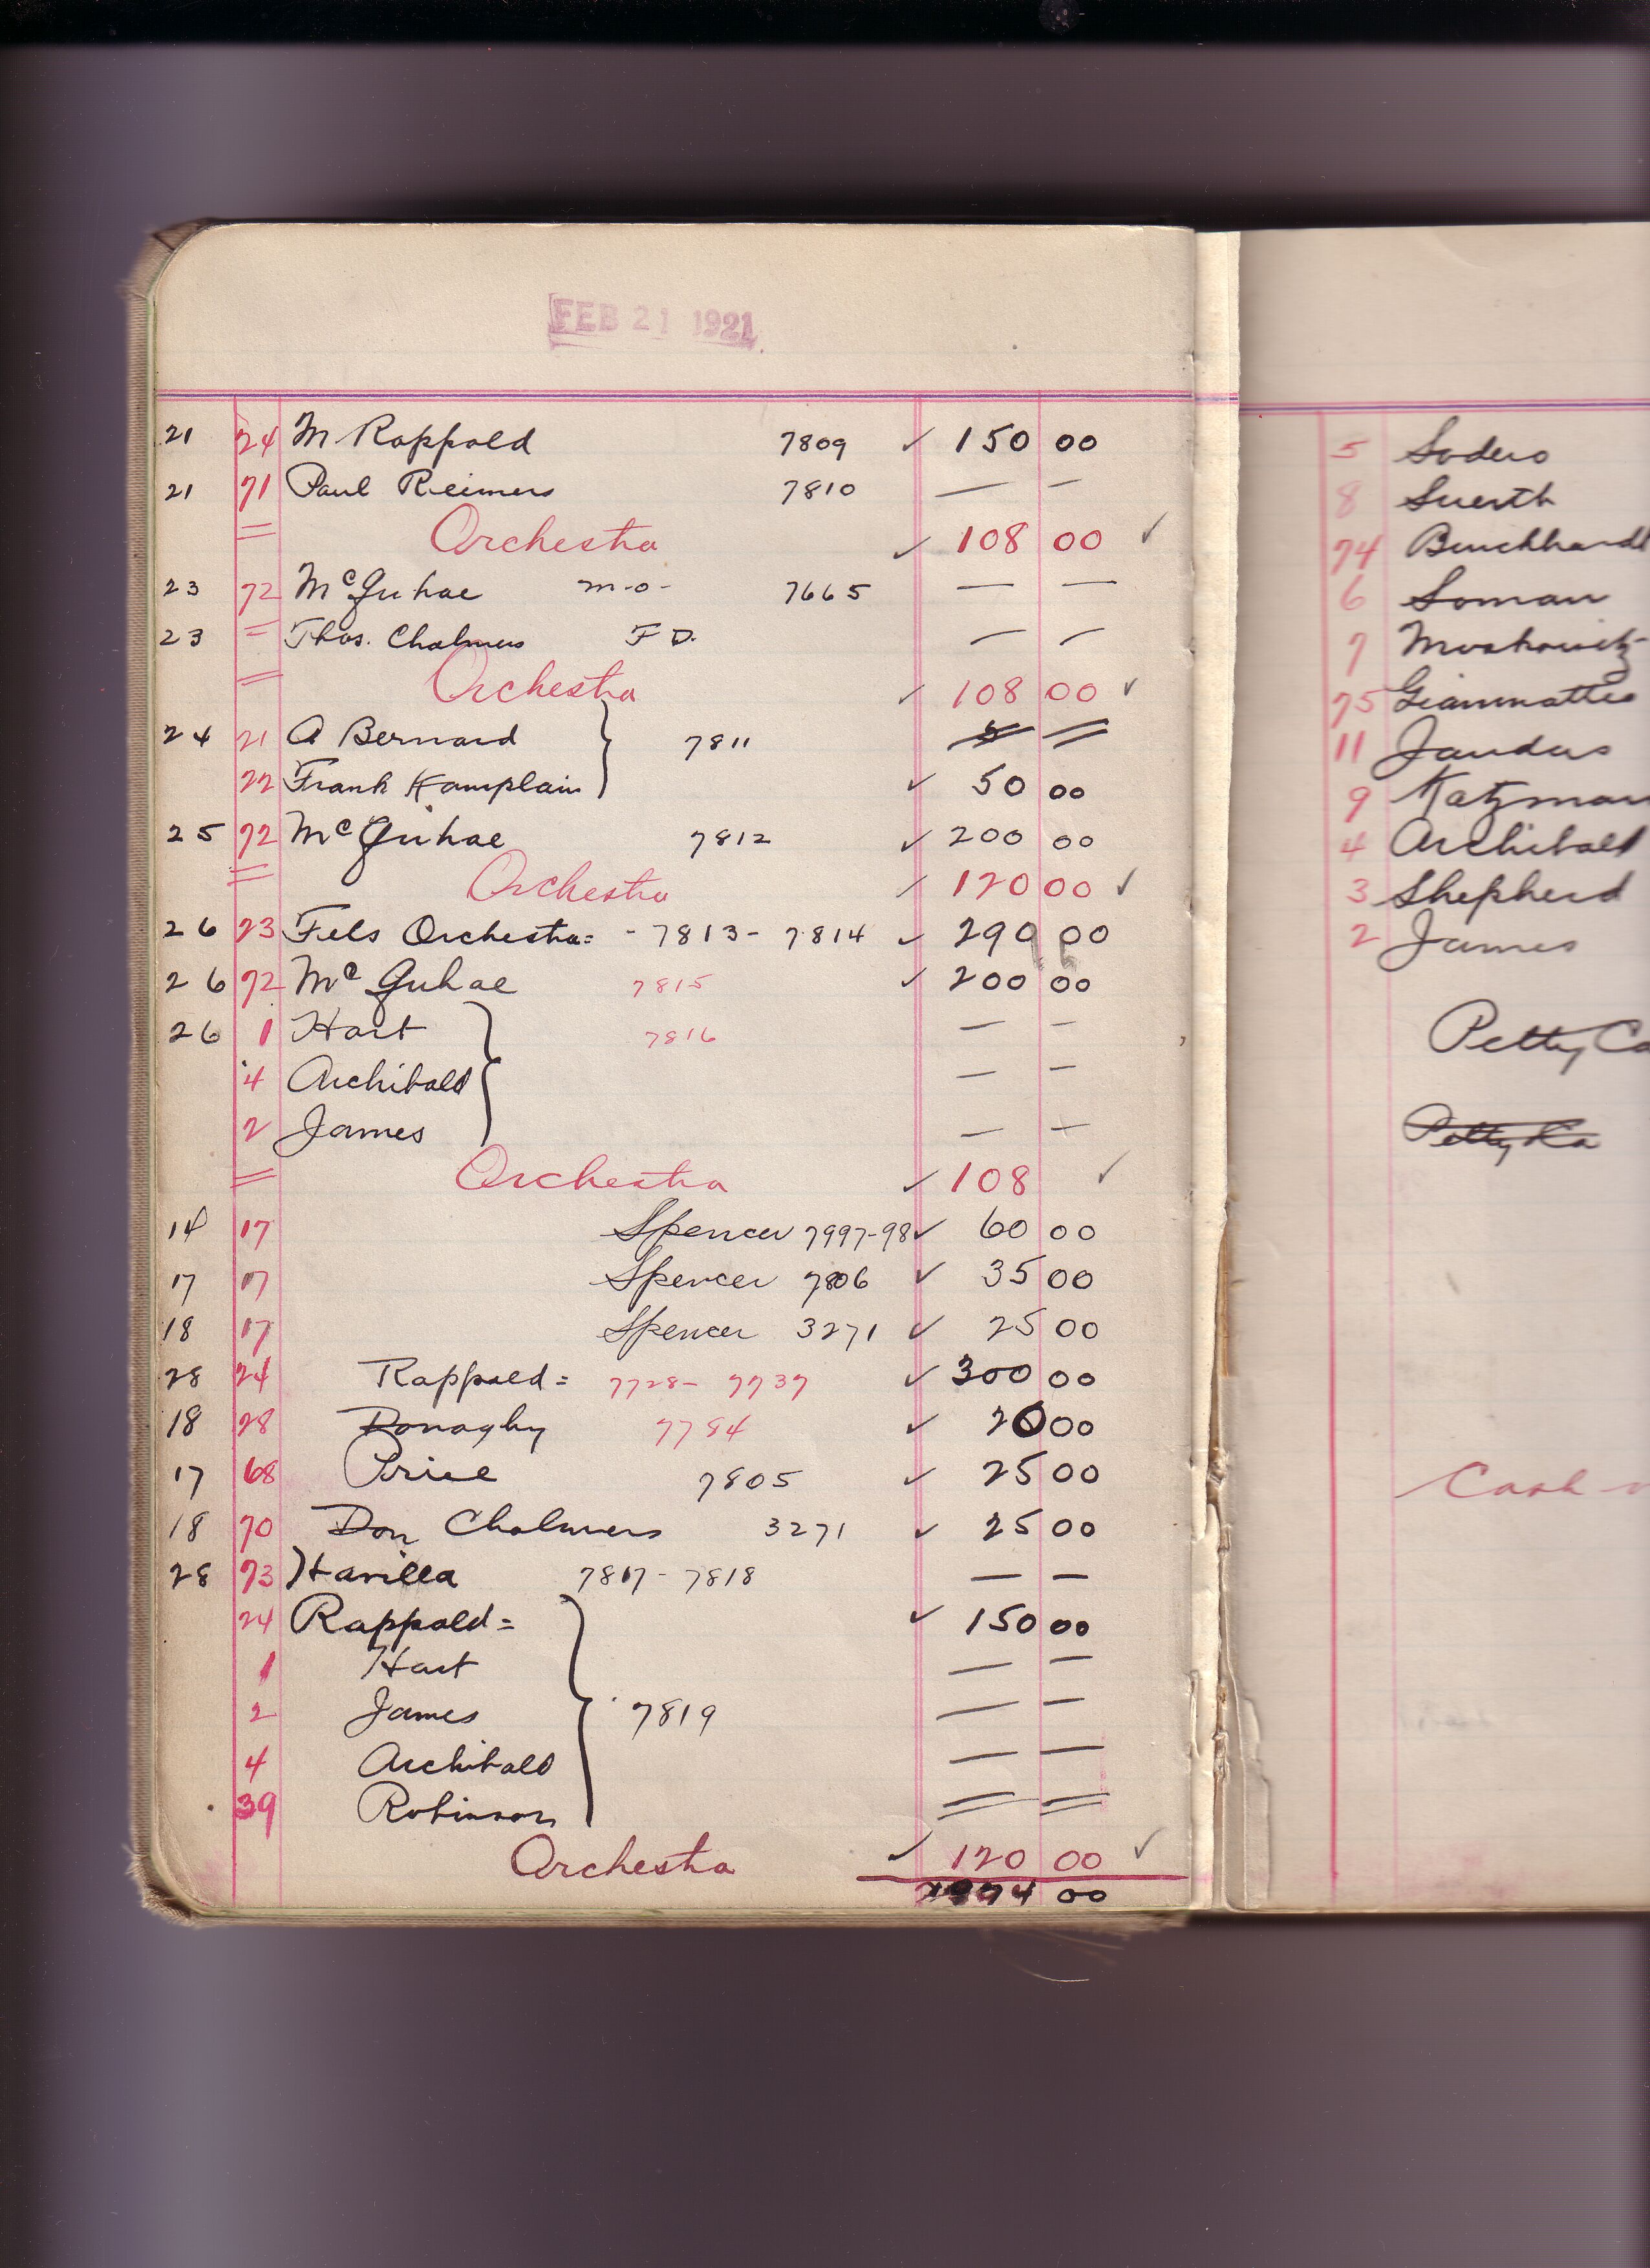 FEB 21 1921
21 24 M Rappold 7809 ✓ 150 00
21 71 Paul Reimers 7810 — —
= Orchestra ✓ 108 00 ✓
23 72 McGuhae m-o- 7665 — —
23 = Thos. Chalmers F D. — —
= Orchestra ✓ 108 00 ✓
24 21 A Bernard 7811
22 Frank Kamplain ✓ 50 00
25 72 McGuhae 7812 ✓ 200 00
= Orchestra ✓ 120 00 ✓
26 23 Fels Orchestra= - 7813 - 7814 ✓ 290 00
26 72 McGuhae 7815 ✓ 200 00
26 1 Hart 7816 — —
4 Archibald — —
2 James — —
= Orchestra ✓ 108 ✓
14 17 Spencer 7997-98 ✓ 60 00
17 17 Spencer 7806 ✓ 35 00
18 17 Spencer 3271 ✓ 25 00
28 24 Rappold = 7728 - 7737 ✓ 300 00
18 28 Donaghy 7784 ✓ 20 00
17 68 Price 7805 ✓ 25 00
18 70 Don Chalmers 3271 ✓ 25 00
28 73 Harilla 7817 - 7818 — —
24 Rappold = ✓ 150 00
1 Hart — —
2 James 7819 — —
4 Archibald — —
39 Robinson = =
Orchestra ✓ 120 00 ✓
00
5 Sodero
8 Suerth
74 Burckhardt
6 Soman
7 Moskowitz
75 Giammatteo
11 Jaudus
9 Katzman
4 Archibald
3 Shepherd
2 James
Petty Ca
Petty Ca
Cash